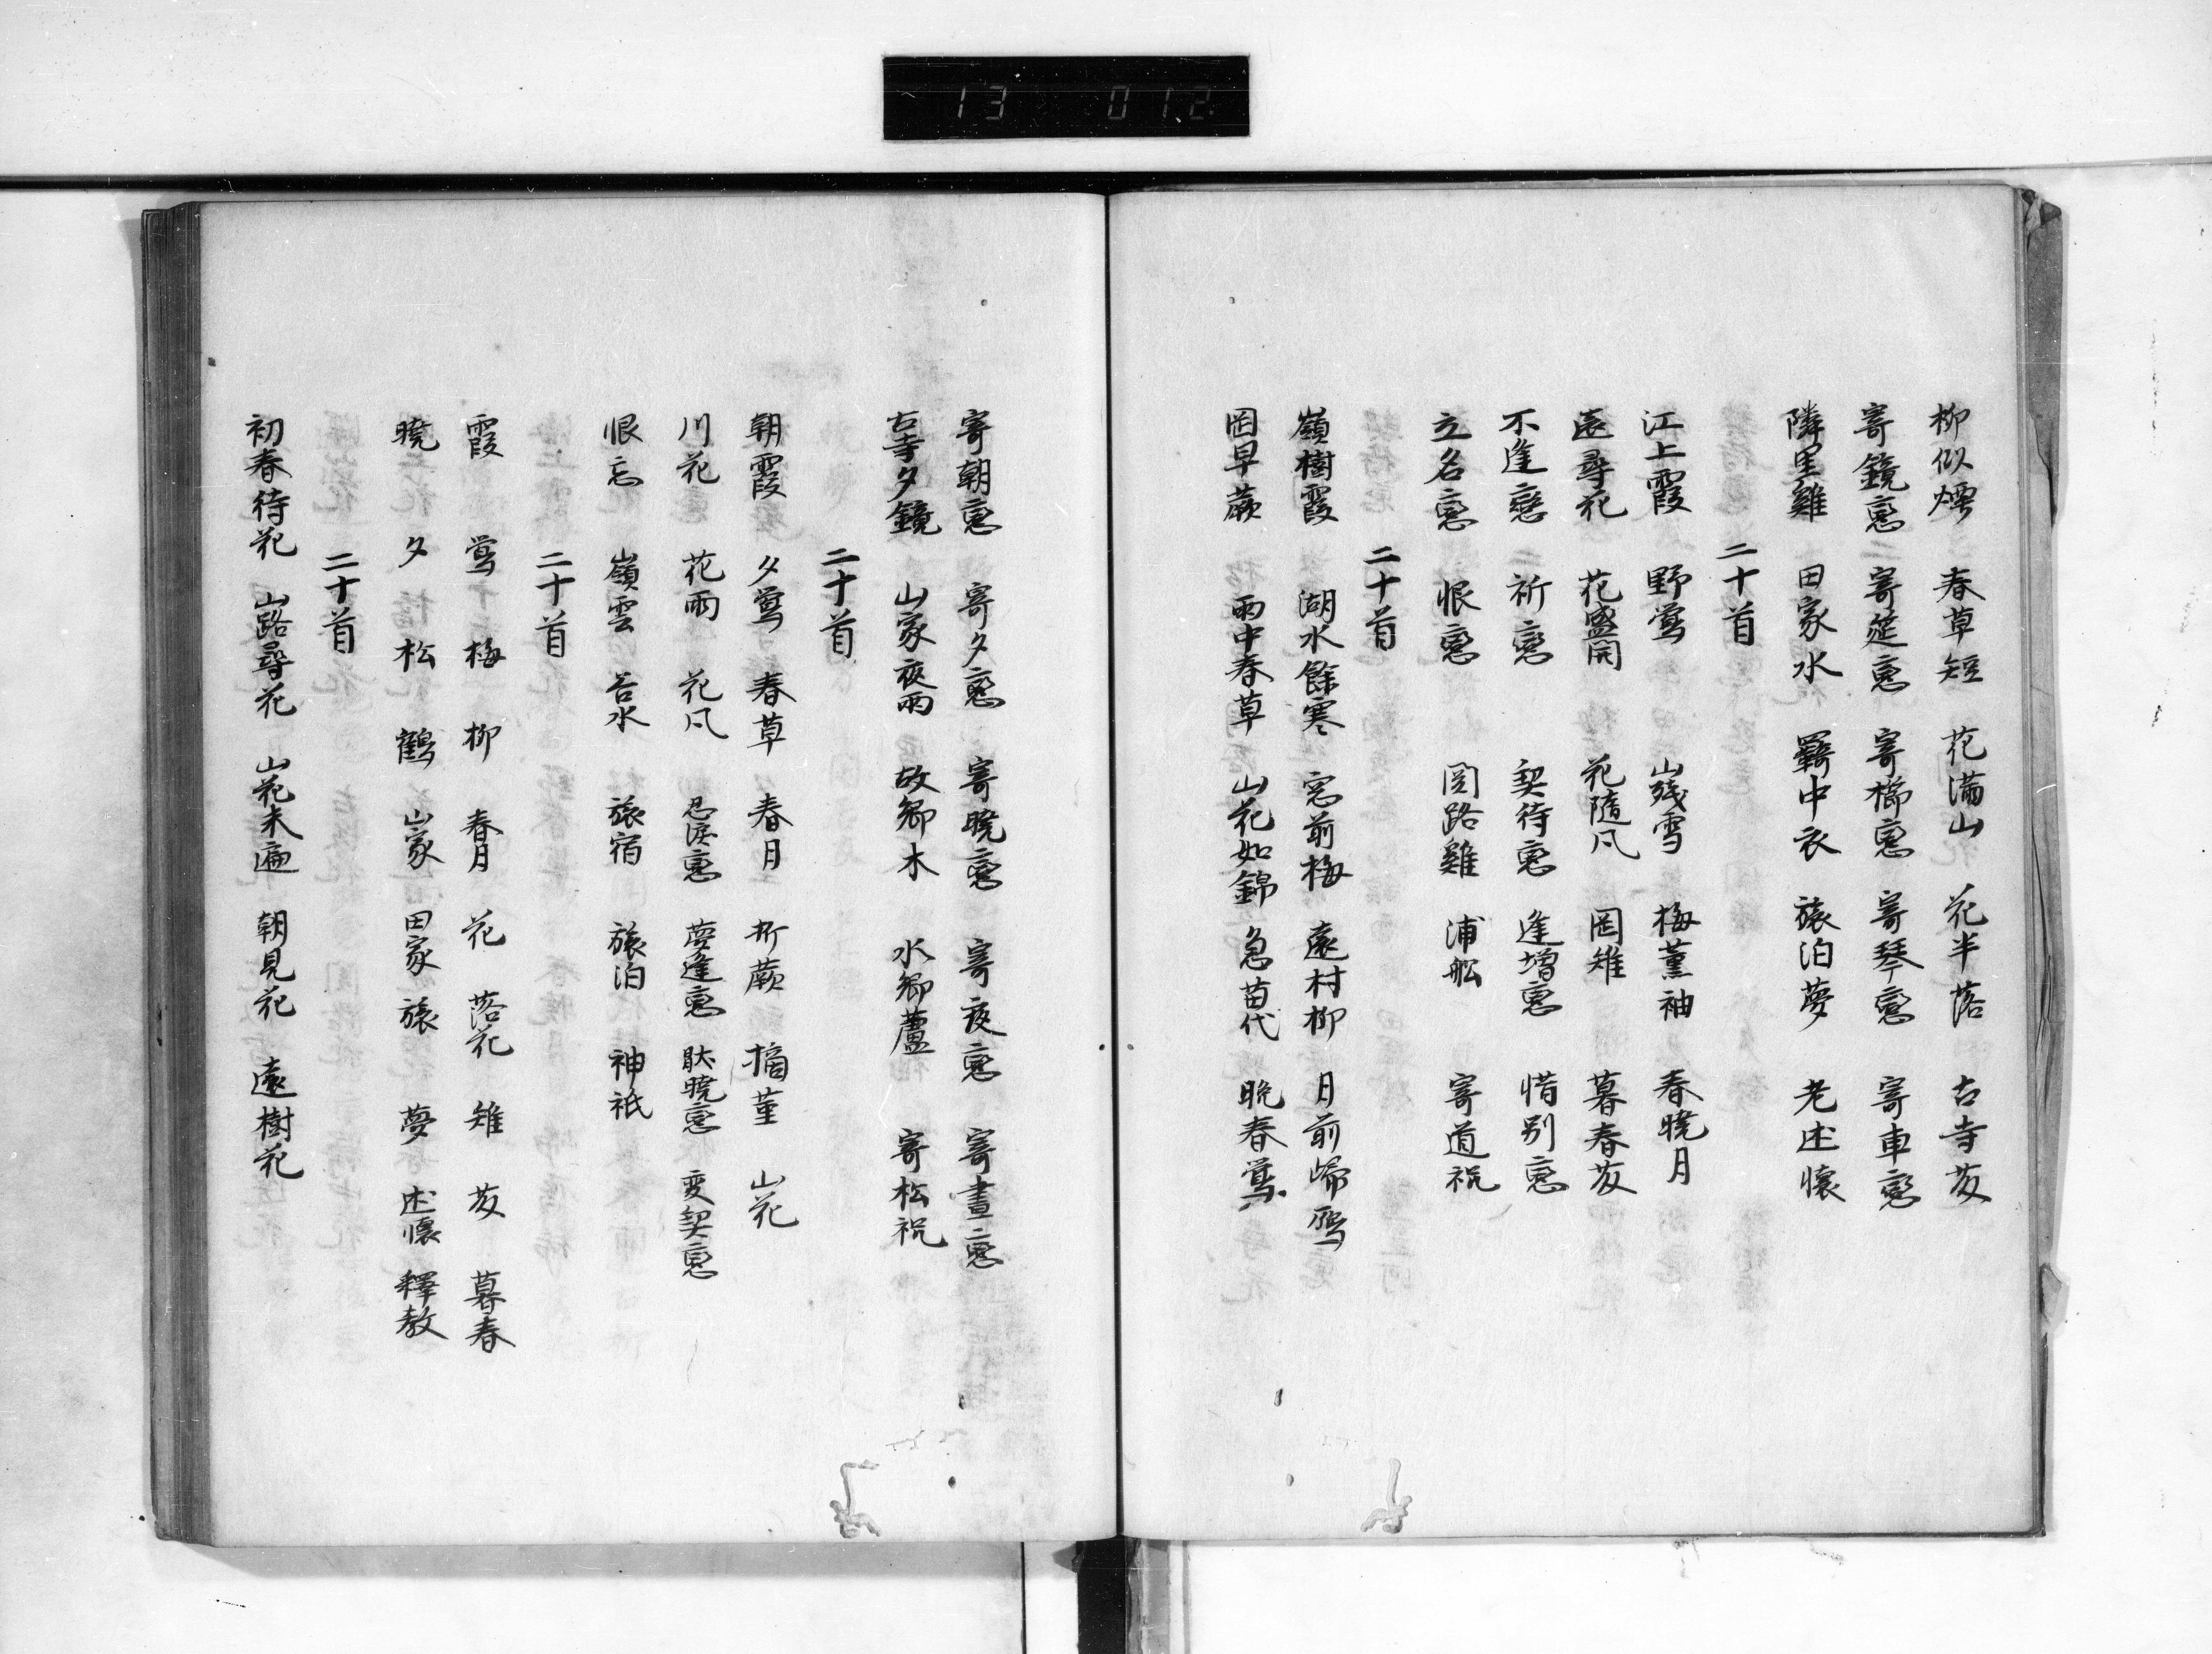 13 012
柳似煙 春草短 花満山 花半落 古寺友
寄鏡恋 寄筵恋 寄櫛恋 寄琴恋 寄車恋
隣里雞 田家水 羇中衣 旅泊夢 老述懐
二十首
江上霞 野鶯 山残雪 梅薫袖 春暁月
遠尋花 花盛開 花随风 岡雉 暮春友
不逢恋 祈恋 契待恋 逢増恋 惜別恋
立名恋 恨恋 関路雞 浦舩 寄道祝
二十首
嶺樹霞 湖水餘寒 窓前梅 遠村柳 月前帰鴈
岡早蕨 雨中春草 山花如錦 急苗代 晩春鶯
寄朝恋 寄夕恋 寄暁恋 寄夜恋 寄昼恋
古寺夕鏡 山家夜雨 故郷木 水郷蘆 寄松祝
二十首
朝霞 夕鶯 春草 春月 折蕨 摘菫 山花
川花 花雨 花风 忍涙恋 夢逢恋 厭暁恋 変契恋
恨忘 嶺雲 谷水 旅宿 旅泊 神祇
二十首
霞 鶯 梅 柳 春月 花 落花 雉 友 暮春
暁 夕 松 鶴 山家 田家 旅 夢 述懐 釋教
二十首
初春待花 山路尋花 山花未遍 朝見花 遠樹花